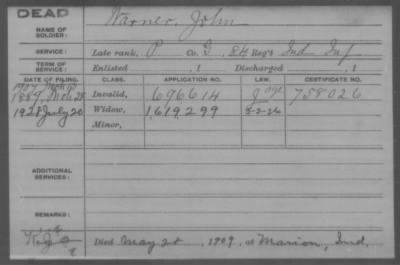 DEAD
NAME OF SOLDIER: Warner, John
SERVICE: Late rank, P Co. G, 84 Reg't Ind Inf
TERM OF SERVICE: Enlisted , 1 Discharged , 1
DATE OF FILING. CLASS. APPLICATION NO. LAW. CERTIFICATE NO.
1889, Invalid, 696614 758026
1928 July 20 Widow, 1,619,299
Minor,
ADDITIONAL SERVICES:
REMARKS:
Died May 21, 1909, at Marion, Ind.